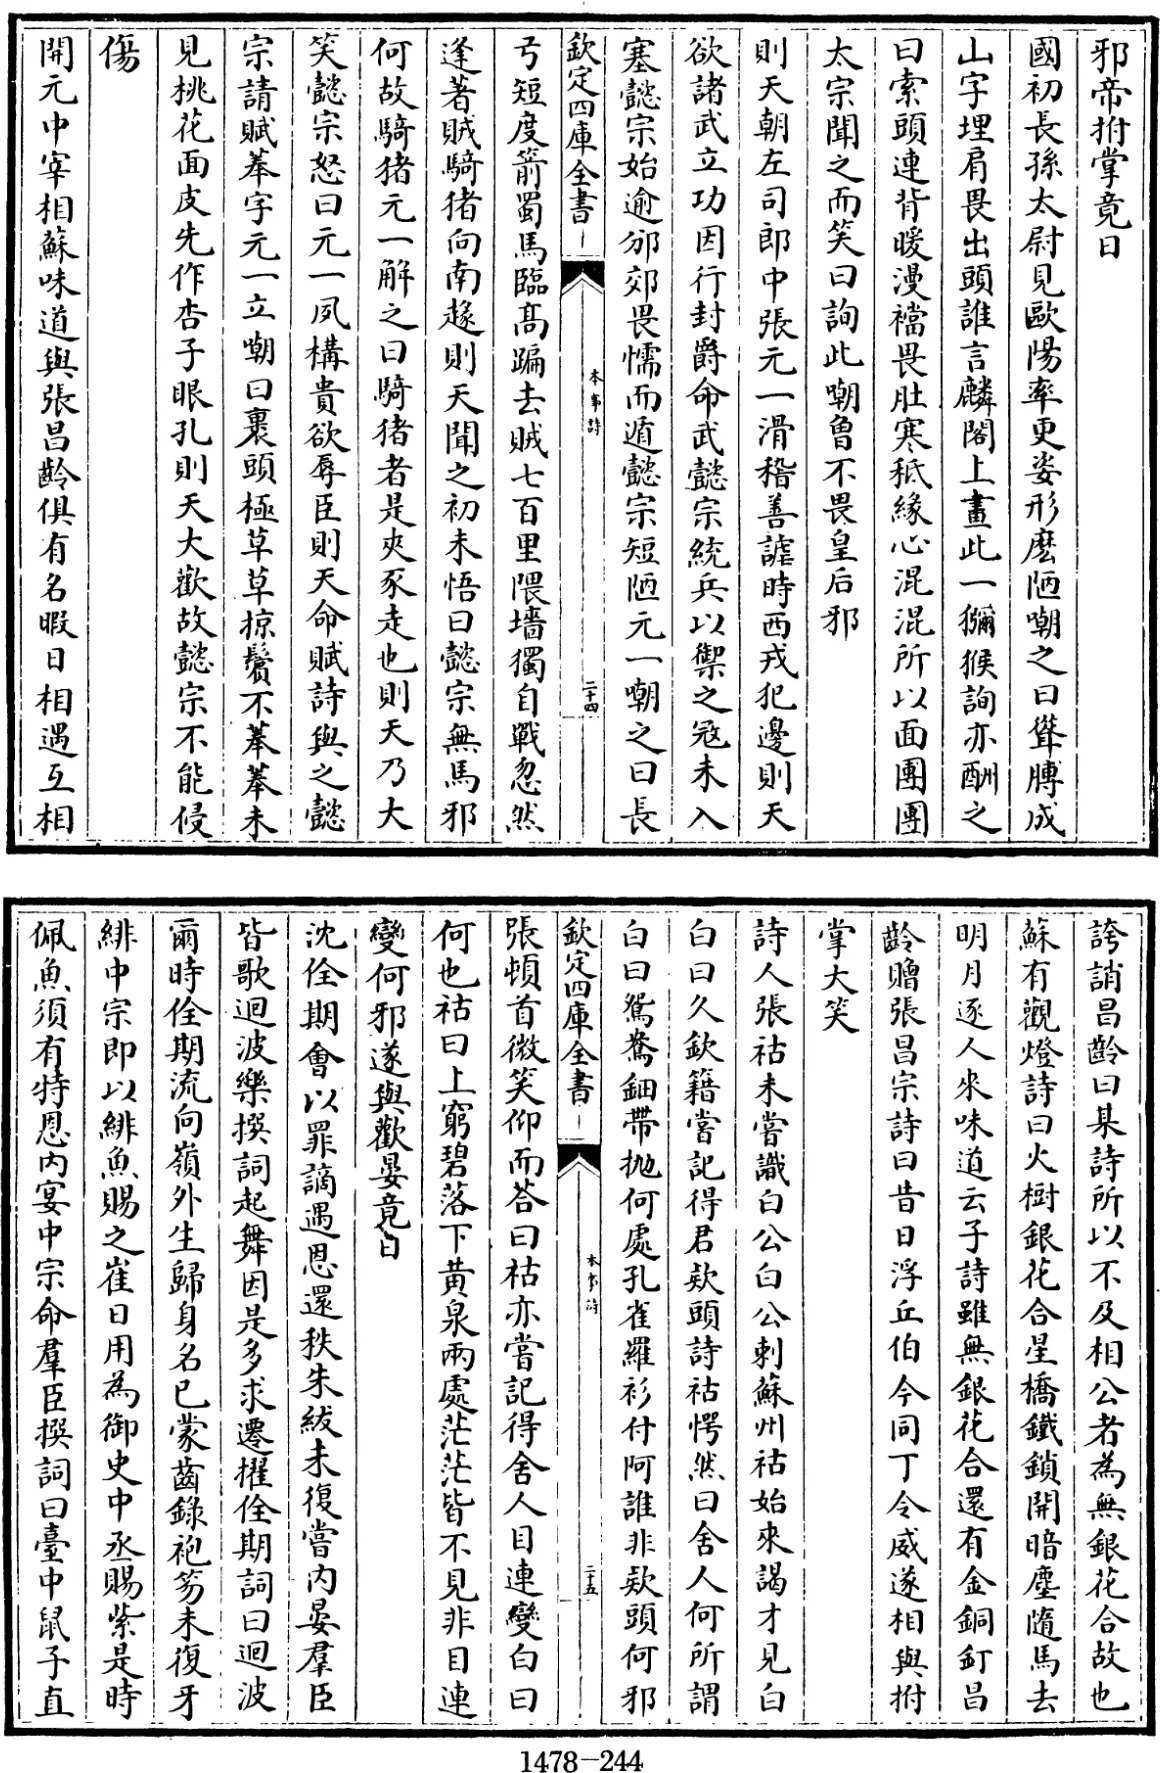 邪帝拊掌竟日
國初長孫太尉見歐陽率更姿形麽陋嘲之曰聳膊成
山字埋肩畏出頭誰言麟閣上畫此一獼猴詢亦酬之
曰索頭連背暖漫襠畏肚寒秪緣心混混所以面團團
太宗聞之而笑曰詢此嘲曾不畏皇后邪
則天朝左司郎中張元一滑稽善謔時西戎犯邊則天
欲諸武立功因行封爵命武懿宗統兵以禦之寇未入
塞懿宗始逾邠郊畏懦而遁懿宗短陋元一嘲之曰長
欽定四庫全書
本事詩
二十四
弓短度箭蜀馬臨高蹁去賊七百里隈墻獨自戰忽然
逢著賊騎猪向南趍則天聞之初未悟曰懿宗無馬邪
何故騎猪元一解之曰騎猪者是夾豕走也則天乃大
笑懿宗怒曰元一夙構貴欲辱臣則天命賦詩與之懿
宗請賦菶字元一立嘲曰裹頭極草草掠鬢不菶菶未
見桃花面皮先作杏子眼孔則天大歡故懿宗不能侵
傷
開元中宰相蘇味道與張昌齡俱有名暇日相遇互相
誇誚昌齡曰某詩所以不及相公者為無銀花合故也
蘇有觀燈詩曰火樹銀花合星橋鐵鎖開暗塵隨馬去
明月逐人來味道云子詩雖無銀花合還有金銅釘昌
齡贈張昌宗詩曰昔日浮丘伯今同丁令威遂相與拊
掌大笑
詩人張祜未嘗識白公白公刺蘇州祜始來謁才見白
白曰久欽籍嘗記得君欵頭詩祜愕然曰舍人何所謂
白曰鴛鴦鈿帶抛何處孔雀羅衫付阿誰非欵頭何邪
欽定四庫全書
本事詩
二十五
張頓首微笑仰而荅曰祜亦嘗記得舍人目連變白曰
何也祜曰上窮碧落下黄泉兩處茫茫皆不見非目連
變何邪遂與歡晏竟日
沈佺期會以罪謫遇恩還秩朱紱未復嘗内宴羣臣
皆歌迴波樂撰詞起舞因是多求遷擢佺期詞曰迴波
爾時佺期流向嶺外生歸身名已蒙齒錄袍笏未復牙
緋中宗即以緋魚賜之崔日用為御史中丞賜紫是時
佩魚須有特恩内宴中宗命羣臣撰詞曰臺中鼠子直
1478-244